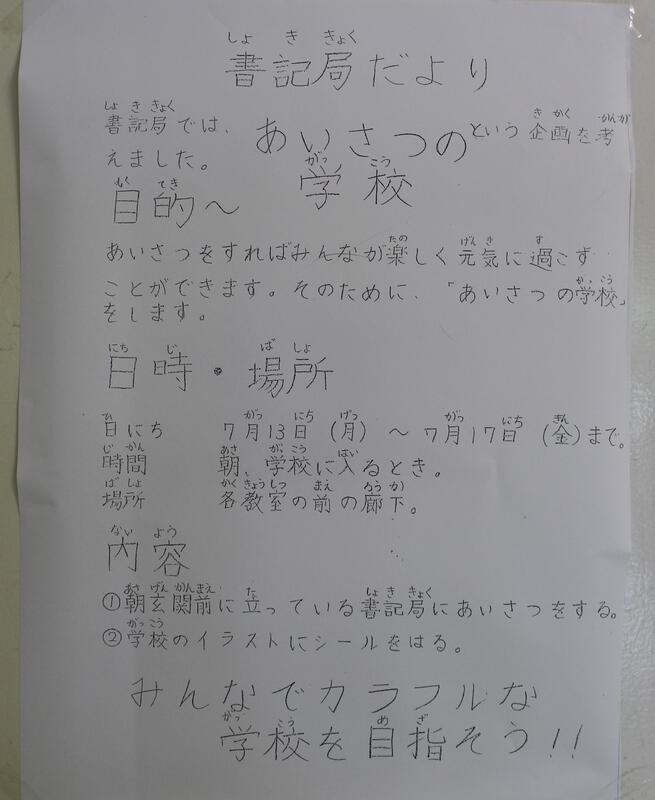 書記局だより
書記局では、あいさつの学校という企画を考
えました。
目的~
あいさつをすればみんなが楽しく元気に過こず
ことができます。そのために、「あいさつの学校」
をします。
日時・場所
日にち 7月13日(月)~7月17日(金)まで。
時間 朝、学校に入るとき。
場所 各教室の前の廊下。
内容
①朝玄関前に立っている書記局にあいさつをする。
②学校のイラストにシールをはる。
みんなでカラフルな
学校を目指そう!!